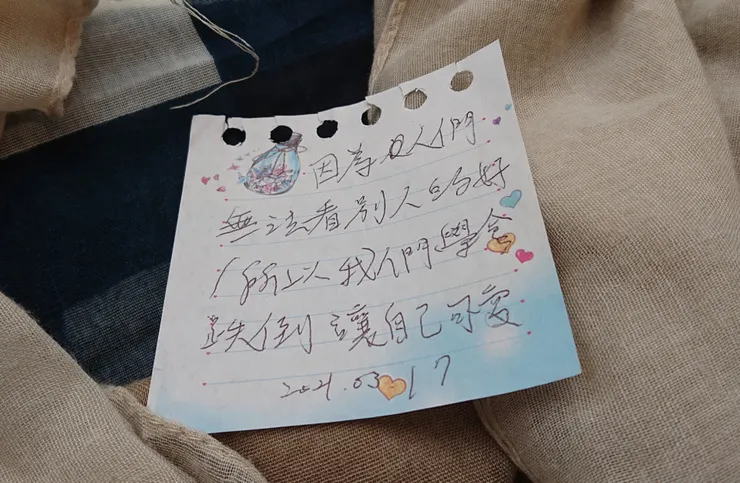 因為人們
無法看別人好
所以我們學会
跌倒讓自己可愛
2021.03 17